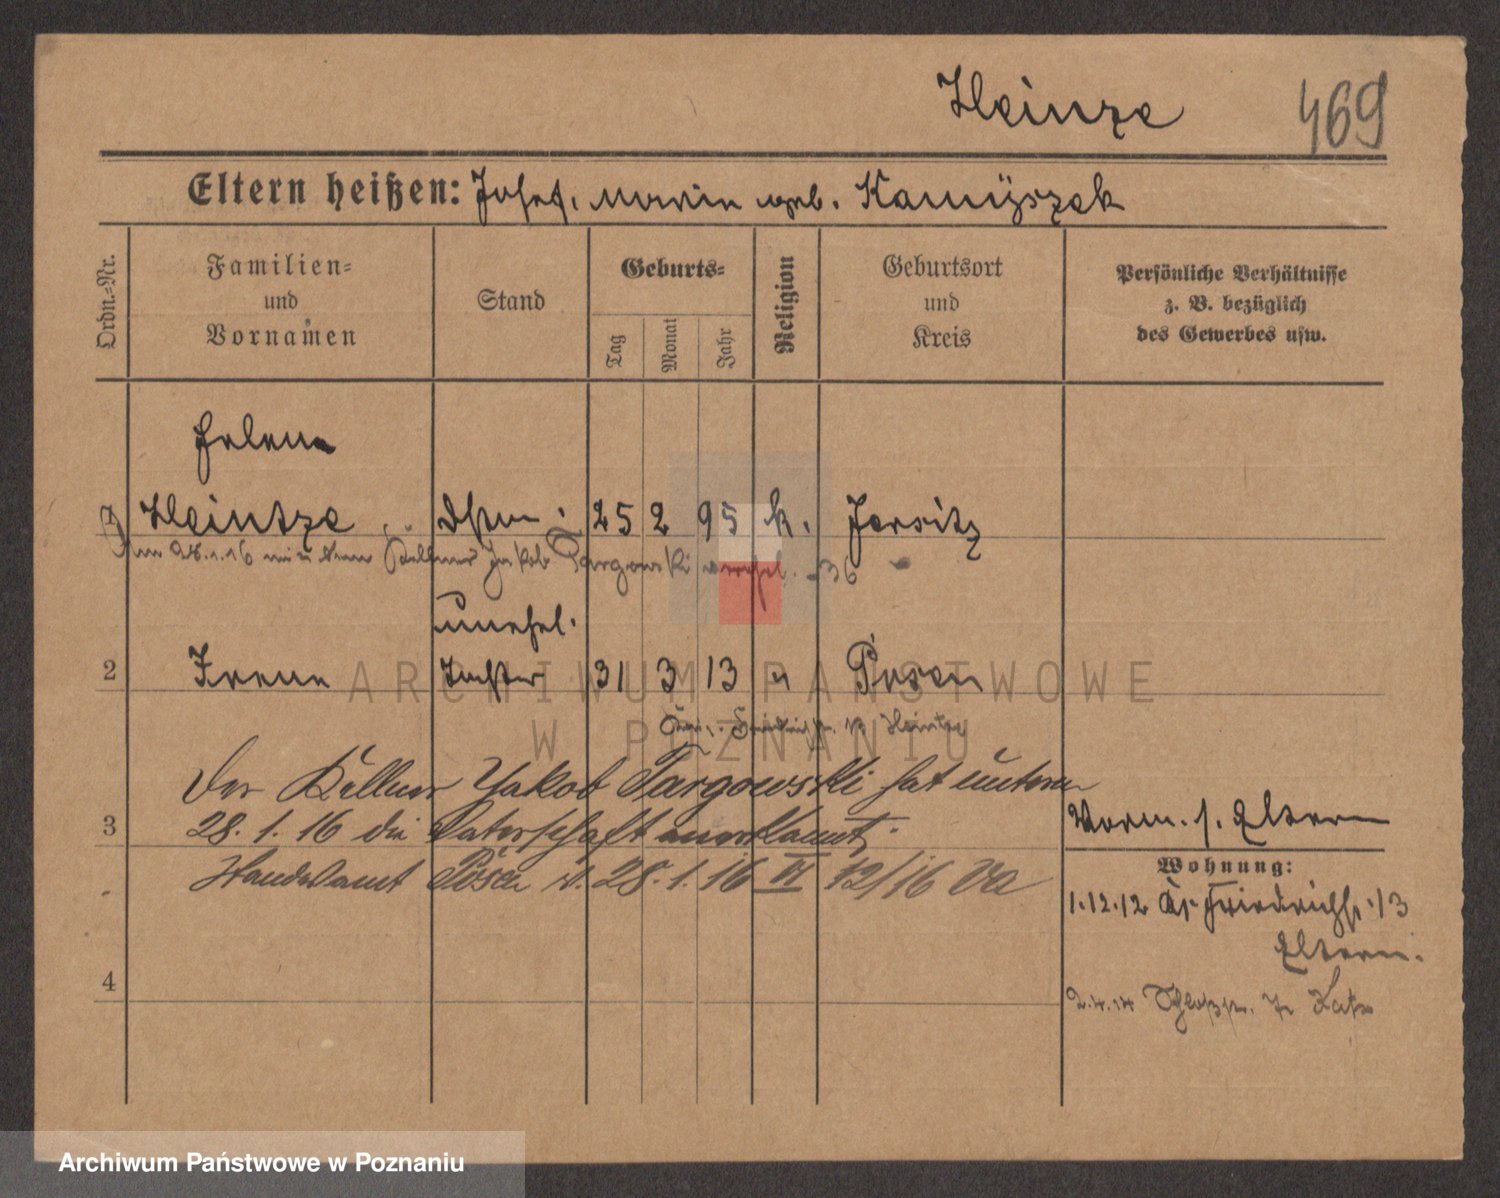 Heinze 469
Eltern heißen: Josef, Maria geb. Kamyszek
Ordn.-Nr.
Familien-
und
Vornamen
Stand
Geburts-
Tag
Monat
Jahr
Religion
Geburtsort
und
Kreis
Persönliche Verhältnisse
z. B. bezüglich
des Gewerbes usw.
Helena
1 Heintze 25 2 95 k. Jersitz
am 28.1.16 mit dem Kellner Jakob Targowski verehel.
unehel.
2 Irene Tochter 31 3 13 " Posen
Der Kellner Jakob Targowski hat unterm
3 28. 1. 16 die Vaterschaft anerkannt,
Standesamt Posen v. 28. 1. 16 VI 12/16
Vorm. s. Eltern
Wohnung:
1.12.12 Gr. Friedrichstr. 13
Eltern.
4
2.4.14 Schloßstr.
ARCHIWUM PAŃSTWOWE
W POZNANIU
Archiwum Państwowe w Poznaniu